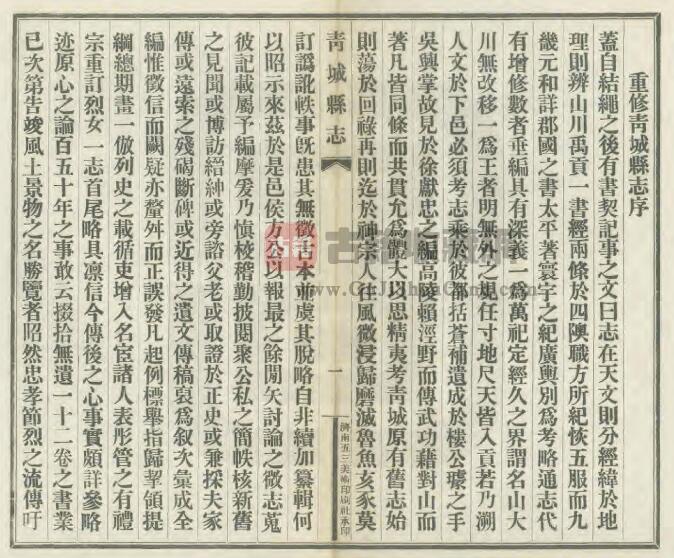 重修青城縣志序
蓋自結繩之後有書契記事之文曰志在天文則分經緯於地
理則辨山川禹貢一書經兩條於四隩職方所紀恢五服而九
畿元和詳郡國之書太平著寰宇之紀廣輿別爲考略通志代
有增修數者垂編具有深義一爲萬祀定經久之界謂名山大
川無改移一爲王者明無外之規任寸地尺天皆入貢若乃溯
人文於下邑必須考志乘於彼都括蒼補遺成於樓公璩之手
吳興掌故見於徐獻忠之編高陵賴涇野而傳武功藉對山而
著凡皆同條而共貫尤為體大以思精夷考青城原有舊志始
則蕩於回祿再則迄於神宗人往風微浸歸磨滅魯魚亥豕莫
青城縣志
一
濟南五三美術印刷社承印
訂譌訛軼事旣患其無徵古本並虞其脫略自非續加纂輯何
以昭示來茲於是邑侯方公以報最之餘閒矢討論之微志蒐
彼記載屬予編摩爰乃慎梭稽勤披閱聚公私之簡帙核新舊
之見聞或博訪縉紳或旁諮父老或取證於正史或兼採夫家
傳或遠索之殘碣斷碑或近得之遺文傳稿裒爲叙次彙成全
編惟徵信而闕疑亦釐舛而正誤發凡起例標舉指歸挈領提
綱總期畫一倣列史之載循吏增入名宦諸人表彤管之有禮
宗重訂烈女一志首尾略具凛信今傳後之心事實頗詳參略
迹原心之論百五十年之事敢云掇拾無遺一十二卷之書業
已次第告竣風土景物之名勝覽者昭然忠孝節烈之流傳吁